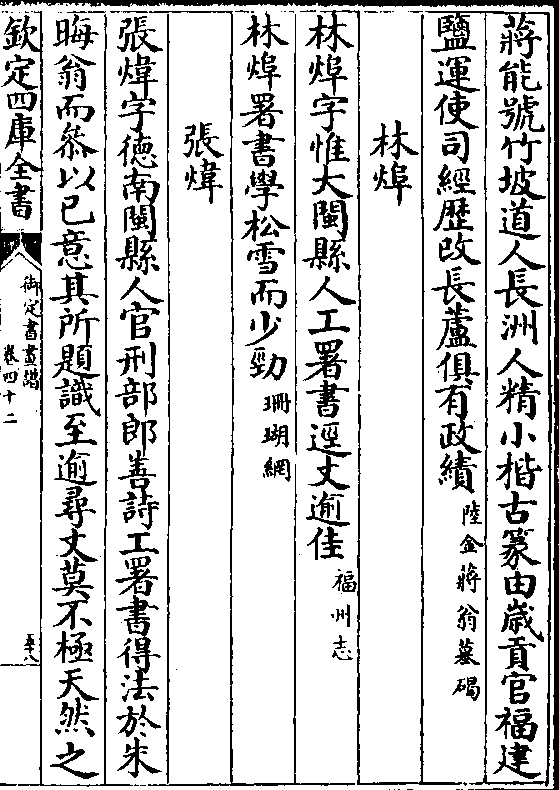 蔣能號竹坡道人長洲人精小楷古篆由歲貢官福建
鹽運使司經歷改長蘆俱有政績 陸金蔣翁墓碣
林㷆
林㷆字惟大閩縣人工署書逕丈逾佳 福州志
林㷆署書學松雪而少勁 珊瑚網
張煒
張煒字德南閩縣人官刑部郎善詩工署書得法於朱
晦翁而叅以己意其所題識至逾尋丈莫不極天然之
欽定四庫全書
御定書畫譜
卷四十二
五十八